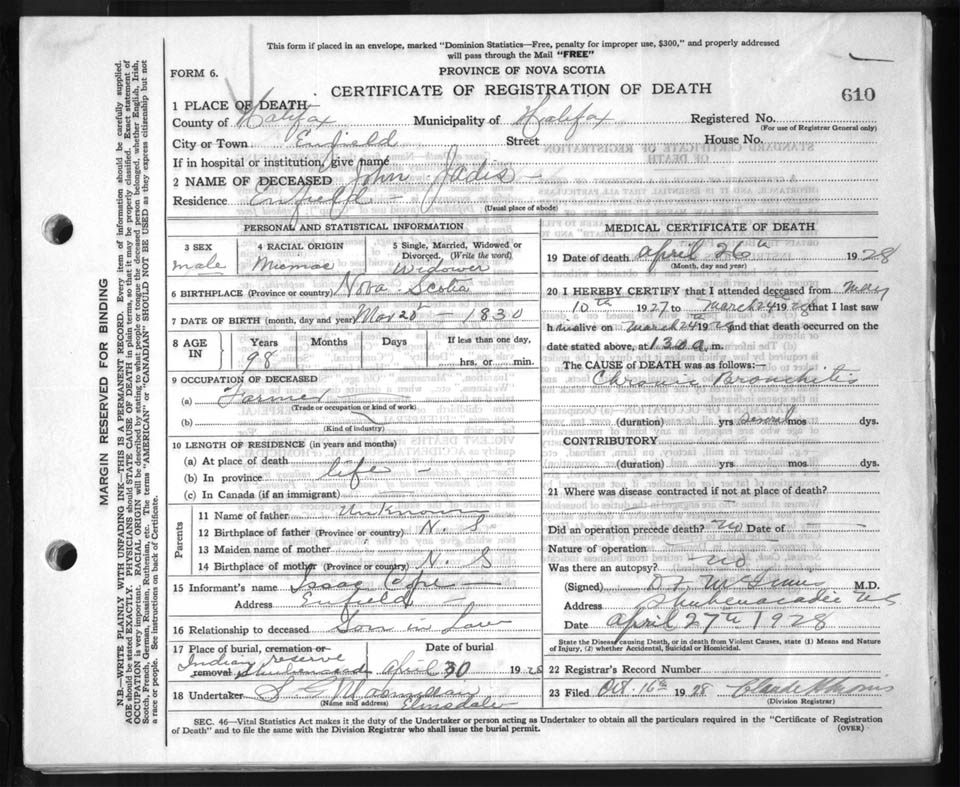 This form if placed in an envelope, marked "Dominion Statistics—Free, penalty for improper use, $300," and properly addressed
will pass through the Mail "FREE"
FORM 6.
PROVINCE OF NOVA SCOTIA
CERTIFICATE OF REGISTRATION OF DEATH
610
1 PLACE OF DEATH
County of Halifax Municipality of Halifax Registered No.
(For use of Registrar General only)
City or Town Enfield Street House No.
If in hospital or institution, give name
2 NAME OF DECEASED John Jadis
Residence Enfield
(Usual place of abode)
PERSONAL AND STATISTICAL INFORMATION
3 SEX 4 RACIAL ORIGIN 5 Single, Married, Widowed or
Divorced. (Write the word)
male Micmac Widower
6 BIRTHPLACE (Province or country) Nova Scotia
7 DATE OF BIRTH (month, day and year) 1830
8 AGE IN Years Months Days If less than one day,
98 hrs. or min.
9 OCCUPATION OF DECEASED
(a) Farmer
(Trade or occupation or kind of work)
(b)
(Kind of industry)
10 LENGTH OF RESIDENCE (in years and months)
(a) At place of death
(b) In province life
(c) In Canada (if an immigrant)
Parents
11 Name of father Unknown
12 Birthplace of father (Province or country) N. S
13 Maiden name of mother
14 Birthplace of mother (Province or country) N. S
15 Informant's name Isaac Cope
Address Enfield
16 Relationship to deceased Son in Law
17 Place of burial, cremation or removal Date of burial
Indian reserve
April 30 1928
18 Undertaker
(Name and address) Elmsdale
MEDICAL CERTIFICATE OF DEATH
19 Date of death April 26th 1928
(Month, day and year)
20 I HEREBY CERTIFY that I attended deceased from May
10th 1927 to March 24 1928 that I last saw
him alive on March 24 1928 and that death occurred on the
date stated above, at 1 30 a. m.
The CAUSE OF DEATH was as follows:—
Chronic Bronchitis
(duration) yrs several mos dys.
CONTRIBUTORY
(duration) yrs mos dys.
21 Where was disease contracted if not at place of death?
Did an operation precede death? no Date of
Nature of operation
Was there an autopsy? no
(Signed) M.D.
Address Shubenacadie N S
Date April 27th 1928
State the Disease causing Death, or in death from Violent Causes, state (1) Means and
Nature of Injury, (2) whether Accidental, Suicidal or Homicidal.
22 Registrar's Record Number
23 Filed Oct. 16th 1928
(Division Registrar)
SEC. 46—Vital Statistics Act makes it the duty of the Undertaker or person acting as Undertaker to obtain all the particulars required in the "Certificate of Registration
of Death" and to file the same with the Division Registrar who shall issue the burial permit.
(OVER)
MARGIN RESERVED FOR BINDING
N.B.—WRITE PLAINLY WITH UNFADING INK—THIS IS A PERMANENT RECORD. Every item of information should be carefully supplied.
AGE should be stated EXACTLY. PHYSICIANS should STATE CAUSE OF DEATH in plain terms, so that it may be properly classified. Exact statement of
OCCUPATION is very important. RACIAL ORIGIN will be described by stating to what people or tongue the deceased person belonged, whether English, Irish,
Scotch, French, German, Russian, Ruthenian, etc. The terms "AMERICAN" or "CANADIAN" SHOULD NOT BE USED as they express citizenship but not
a race or people. See instructions on back of Certificate.